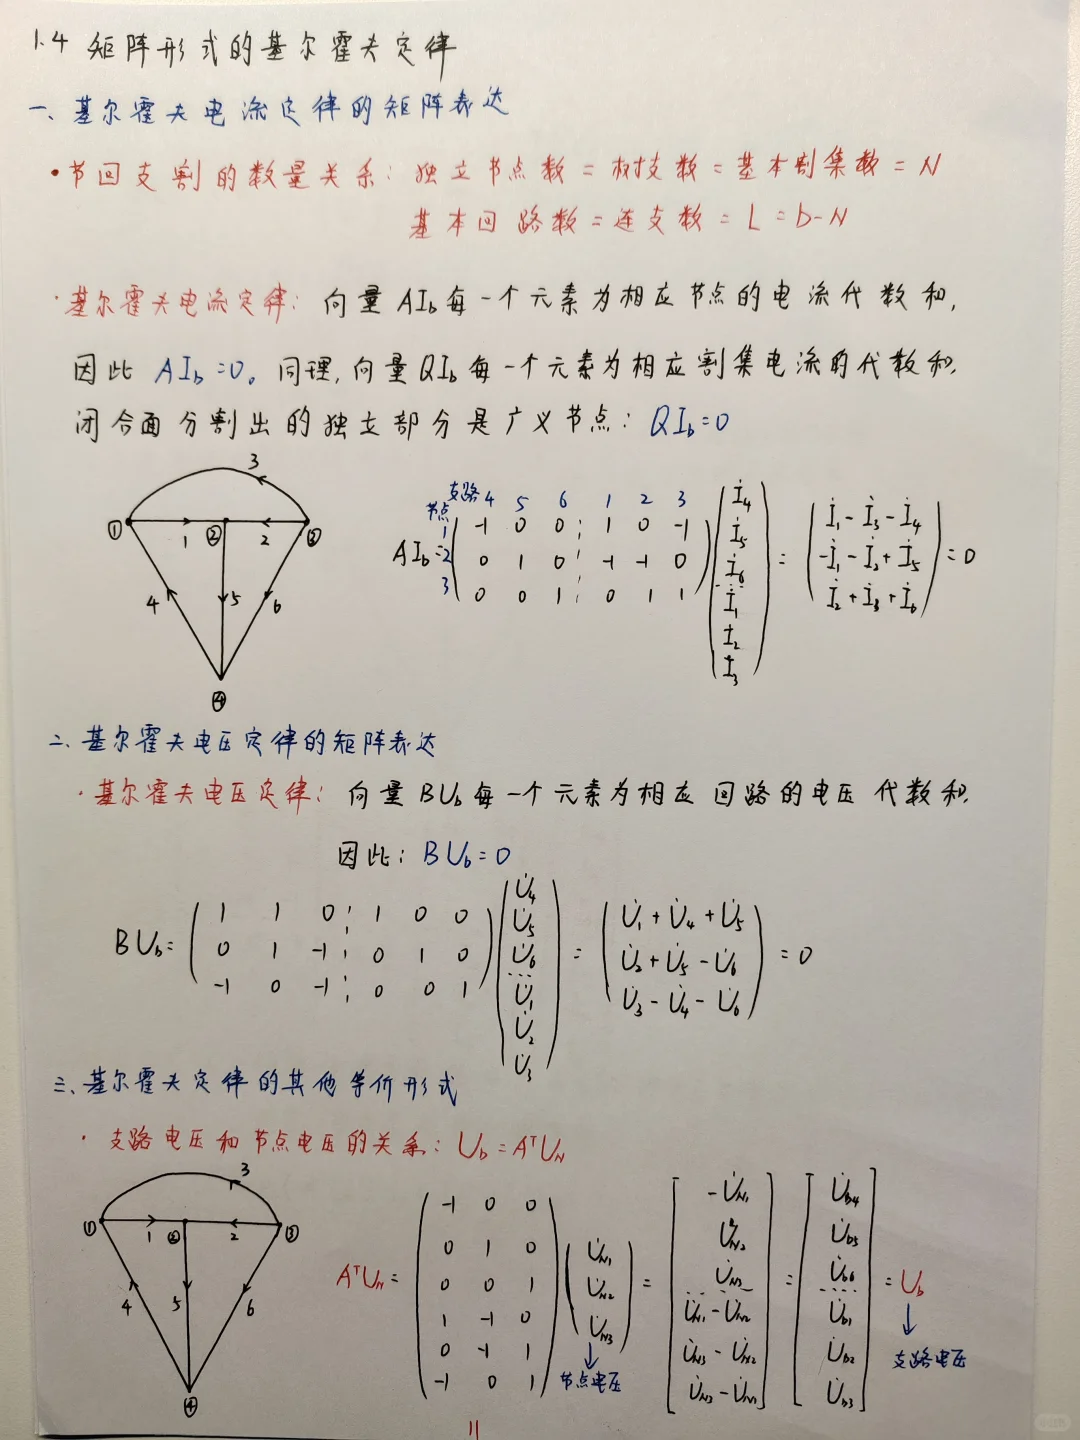 1.4 矩阵形式的基尔霍夫定律
一、基尔霍夫电流定律的矩阵表达
·节回支割的数量关系: 独立节点数 = 树支数 = 基本割集数 = N
基本回路数 = 连支数 = L = b-N
·基尔霍夫电流定律: 向量 AI_b 每一个元素为相应节点的电流代数和,
因此 AI_b=0。同理,向量QI_b每一个元素为相应割集电流的代数和,
闭合面分割出的独立部分是广义节点: QI_b=0
3
① 1 ② 2 ③
4 5 6
④
支路 4 5 6 1 2 3
节点
AI_b =
1 ( -1 0 0 ¦ 1 0 -1 )
2 ( 0 1 0 ¦ -1 -1 0 )
3 ( 0 0 1 ¦ 0 1 1 )
( İ₄ İ₅ İ₆ İ₁ İ₂ İ₃ )
= ( İ₁ - İ₃ - İ₄
-İ₁ - İ₂ + İ₅
İ₂ + İ₃ + İ₆ ) = 0
二、基尔霍夫电压定律的矩阵表达
·基尔霍夫电压定律: 向量 BU_b 每一个元素为相应回路的电压代数和,
因此: BU_b=0
BU_b =
( 1 1 0 ¦ 1 0 0 )
( 0 1 -1 ¦ 0 1 0 )
( -1 0 -1 ¦ 0 0 1 )
( U̇₄ U̇₅ U̇₆ U̇₁ U̇₂ U̇₃ )
= ( U̇₁ + U̇₄ + U̇₅
U̇₂ + U̇₅ - U̇₆
U̇₃ - U̇₄ - U̇₆ ) = 0
三、基尔霍夫定律的其他等价形式
·支路电压和节点电压的关系: U_b = AᵀU_N
3
① 1 ② 2 ③
4 5 6
④
AᵀU_N =
( -1 0 0 )
( 0 1 0 )
( 0 0 1 )
( 1 -1 0 )
( 0 -1 1 )
( -1 0 1 )
( U̇_N1 U̇_N2 U̇_N3 )
↓
节点电压
= [ -U̇_N1
U̇_N2
U̇_N3
U̇_N1 - U̇_N2
U̇_N3 - U̇_N2
U̇_N3 - U̇_N1 ]
= [ U̇_b4 U̇_b5 U̇_b6 U̇_b1 U̇_b2 U̇_b3 ] = U_b
↓
支路电压
11